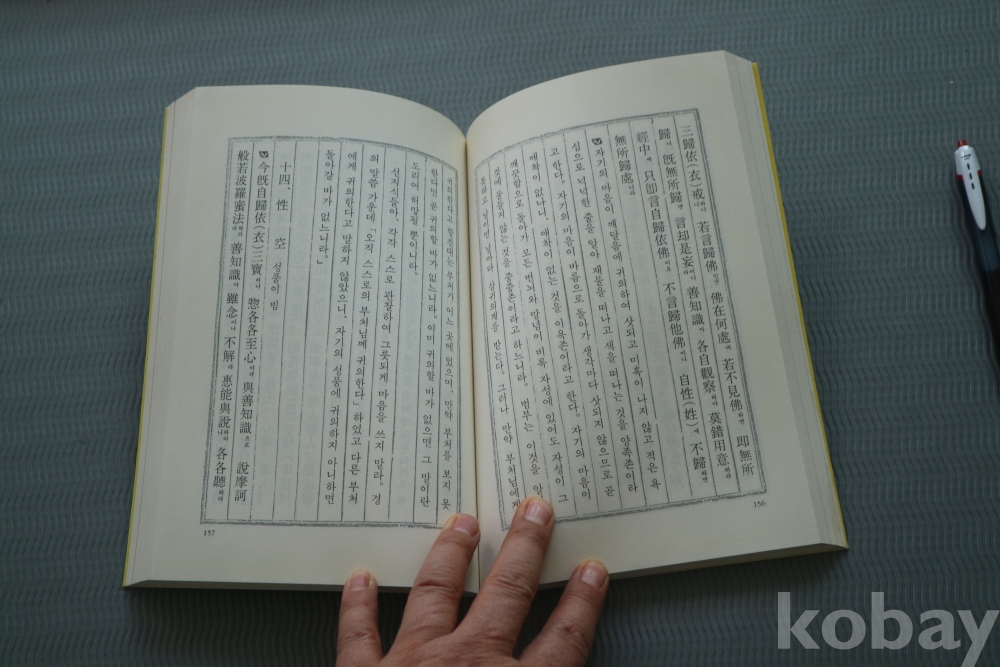 三歸依(衣)戒하나니 若言歸佛인댄 佛在何處오 若不見佛하면 即無所
歸니 旣無所歸면 言却是妄이니라 善知識아 各自觀察하야 莫錯用意하라
經中에 只卽言自歸依佛이요 不言歸他佛이니 自性(姓)에 不歸하면
無所歸處니라
자기의 마음이 깨달음에 귀의하여 삿되고 미혹이 나지 않고 적은 욕
심으로 넉넉한 줄을 알아 재물을 떠나고 색을 떠나는 것을 양족존이라
고 한다. 자기의 마음이 바름으로 돌아가 생각마다 삿되지 않으므로 곧
애착이 없나니, 애착이 없는 것을 이욕존이라고 한다. 자기의 마음이
깨끗함으로 돌아가 모든 번뇌와 망념이 비록 자성에 있어도 자성이 그
것에 물들지 않는 것을 중중존이라고 하느니라. 범부는 이것을
날마다 삼귀의계를 받는다. 그러나 만약 부처님에게
156
귀의한다고 할진대는 부처가 어느 곳에 있으며, 만약 부처를 보지 못
한다면 곧 귀의할 바가 없느니라. 이미 귀의할 바가 없으면 그 말이란
도리어 허망될 뿐이니라.
선지식들아, 각각 스스로 관찰하여 그릇되게 마음을 쓰지 말라. 경
의 말씀 가운데 「오직 스스로의 부처님께 귀의한다」 하였고 다른 부처
에게 귀의한다고 말하지 않았으니, 자기의 성품에 귀의하지 아니하면
돌아갈 바가 없느니라.」
十四、性 空 성품이 빔
今旣自歸依(衣)三寶하니 惣各各至心이라 與善知識으로 說摩訶
般若波羅蜜法하리라 善知識아 雖念이나 不解하라 惠能與說하리니 各各聽하라
157
kobay